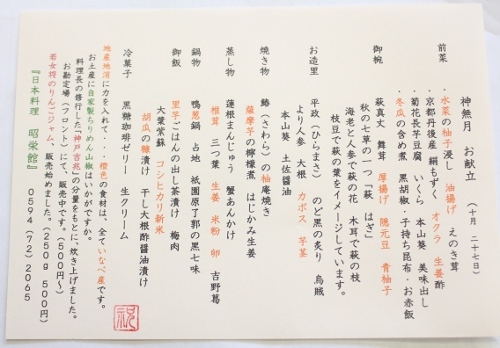 神無月 お献立 (十月 二十七日)
前菜
・水菜の柚子浸し 油揚げ えのき茸
・京都丹後産 絹もずく オクラ 生姜酢
・菊花長芋豆腐 いくら 本山葵 美味出し
・冬瓜の含め煮 黒胡椒・子持ち昆布・お赤飯
御椀
萩真丈 舞茸 厚揚げ 隠元豆 青柚子
秋の七草の一つ「萩 はぎ」
海老と人参で萩の花 木耳で萩の枝
枝豆で萩の葉をイメージしています。
お造里
平政(ひらまさ) のど黒の炙り 烏賊
より人参 大根 カボス 芋茎
本山葵 土佐醤油
焼き物
鰆(さわら)の柚庵焼き
薩摩芋の檸檬煮 はじかみ生姜
蒸し物
蓮根まんじゅう 蟹あんかけ
椎茸 三つ葉 生姜 米粉 卵 吉野葛
鍋物
鴨葱鍋 占地 祇園原了郭の黒七味
御飯
里芋ごはんの出し茶漬け 梅肉
大葉紫蘇 コシヒカリ新米
胡瓜の糠漬け 干し大根酢醤油漬け
冷菓子
黒糖珈琲ゼリー 生クリーム
地産地消に力を入れて・・橙色の食材は、全ていなべ産です。
お土産に自家製ちりめん山椒はいかがですか。
料理長の修行した「神戸吉兆」の分量をもとに、炊き上げました。
お勘定場(フロント)にて、販売中です。(600円〜)
若女将のりんごジャム、販売始めました。(250g 500円)
『日本料理 昭栄館』 0594(72)2065
祝